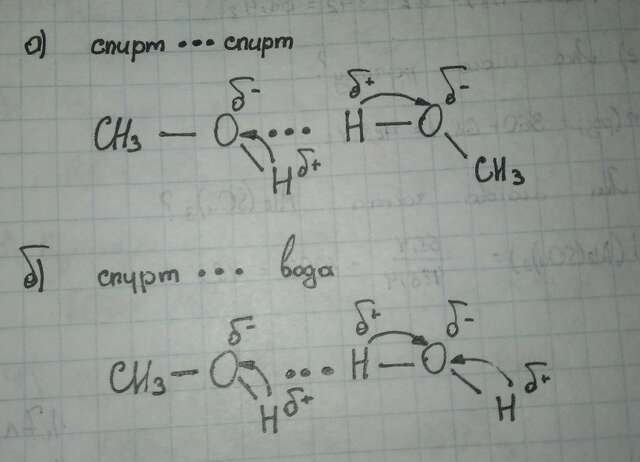 а) спирт ••• спирт
δ- δ+ δ-
CH₃ — O ••• H — O
H δ+ CH₃
б) спирт ••• вода
δ- δ+ δ-
CH₃ — O ••• H — O
H δ+ H δ+